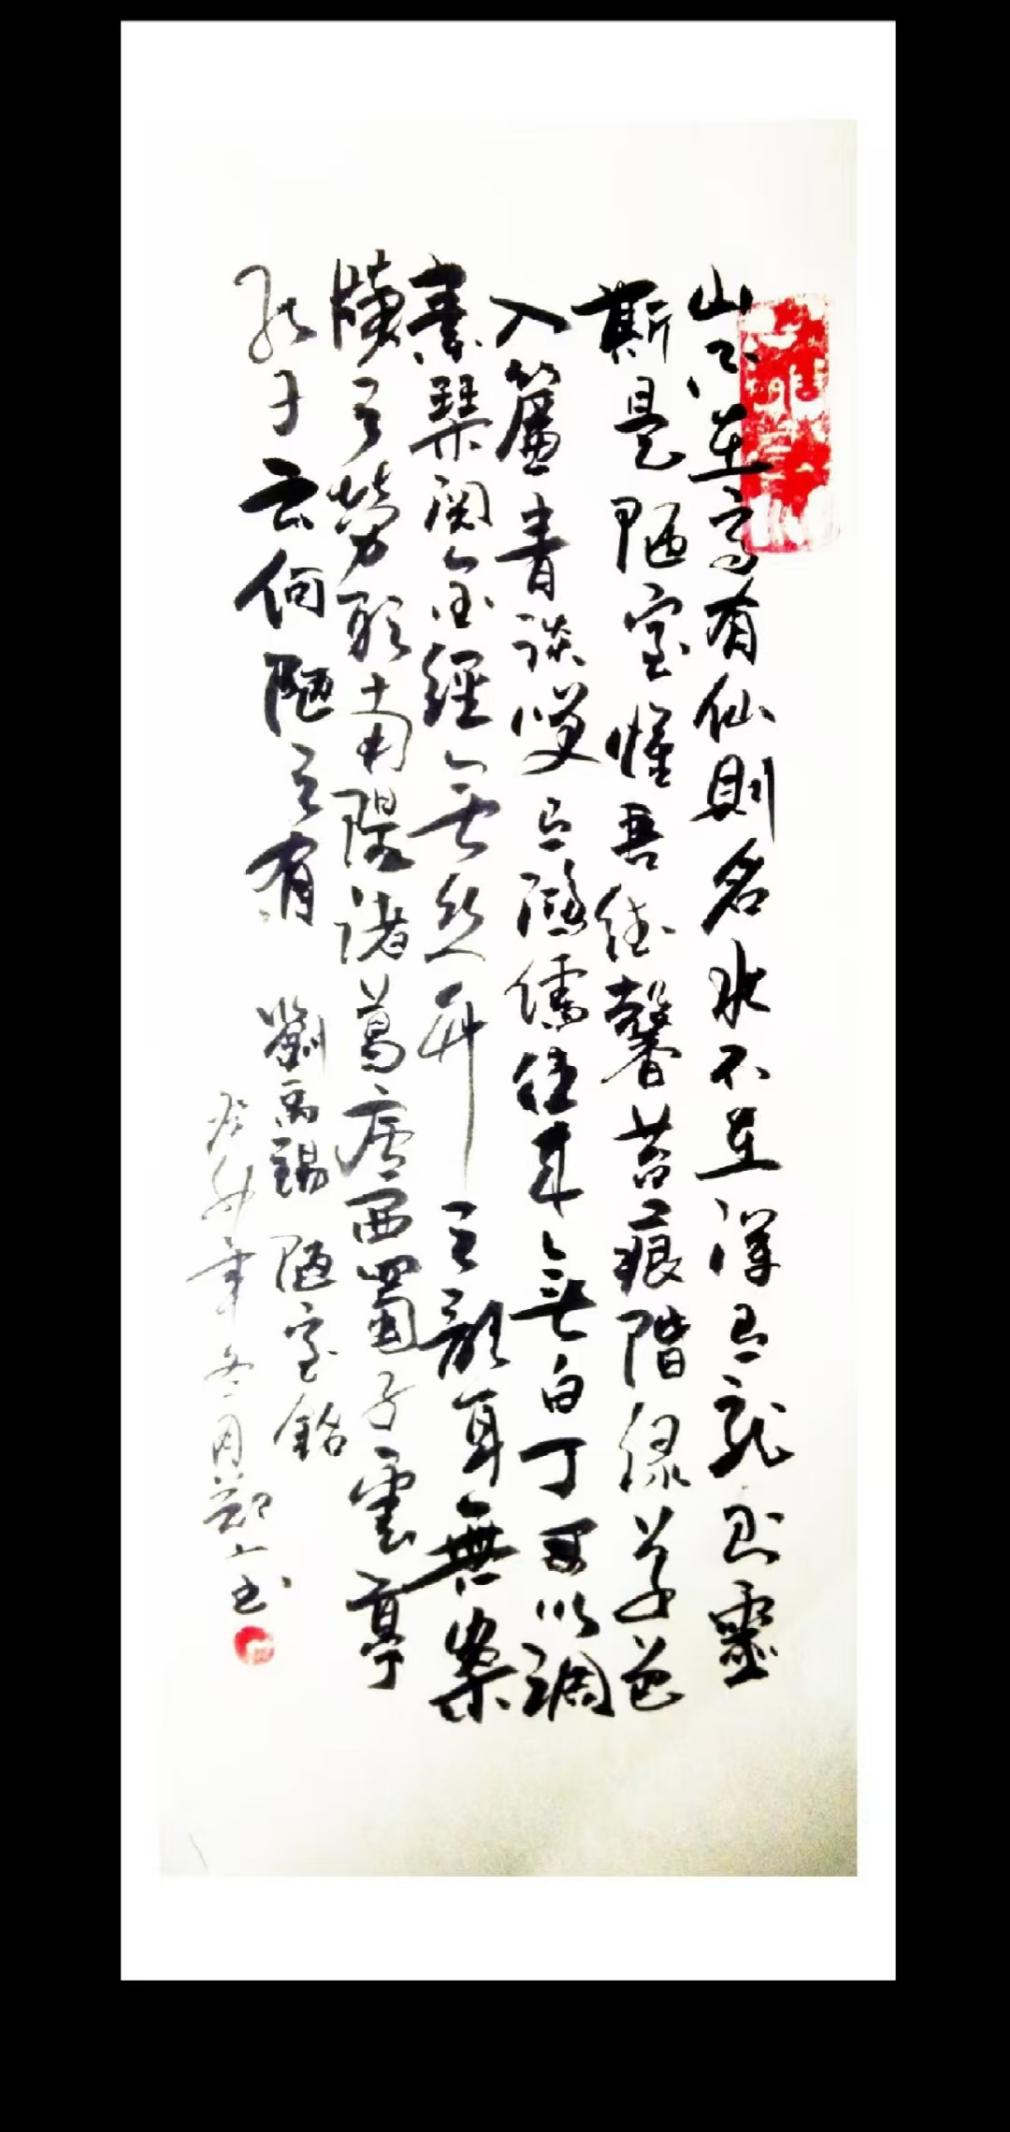 山不在高有仙則名水不在深有龍則靈
斯是陋室惟吾德馨苔痕階綠草色
入簾青談笑有鴻儒往來無白丁可以調
素琴閱金經無絲竹之亂耳無案
牘之勞形南陽諸葛廬西蜀子雲亭
孔子云何陋之有 劉禹錫 陋室銘
癸卯年冬月